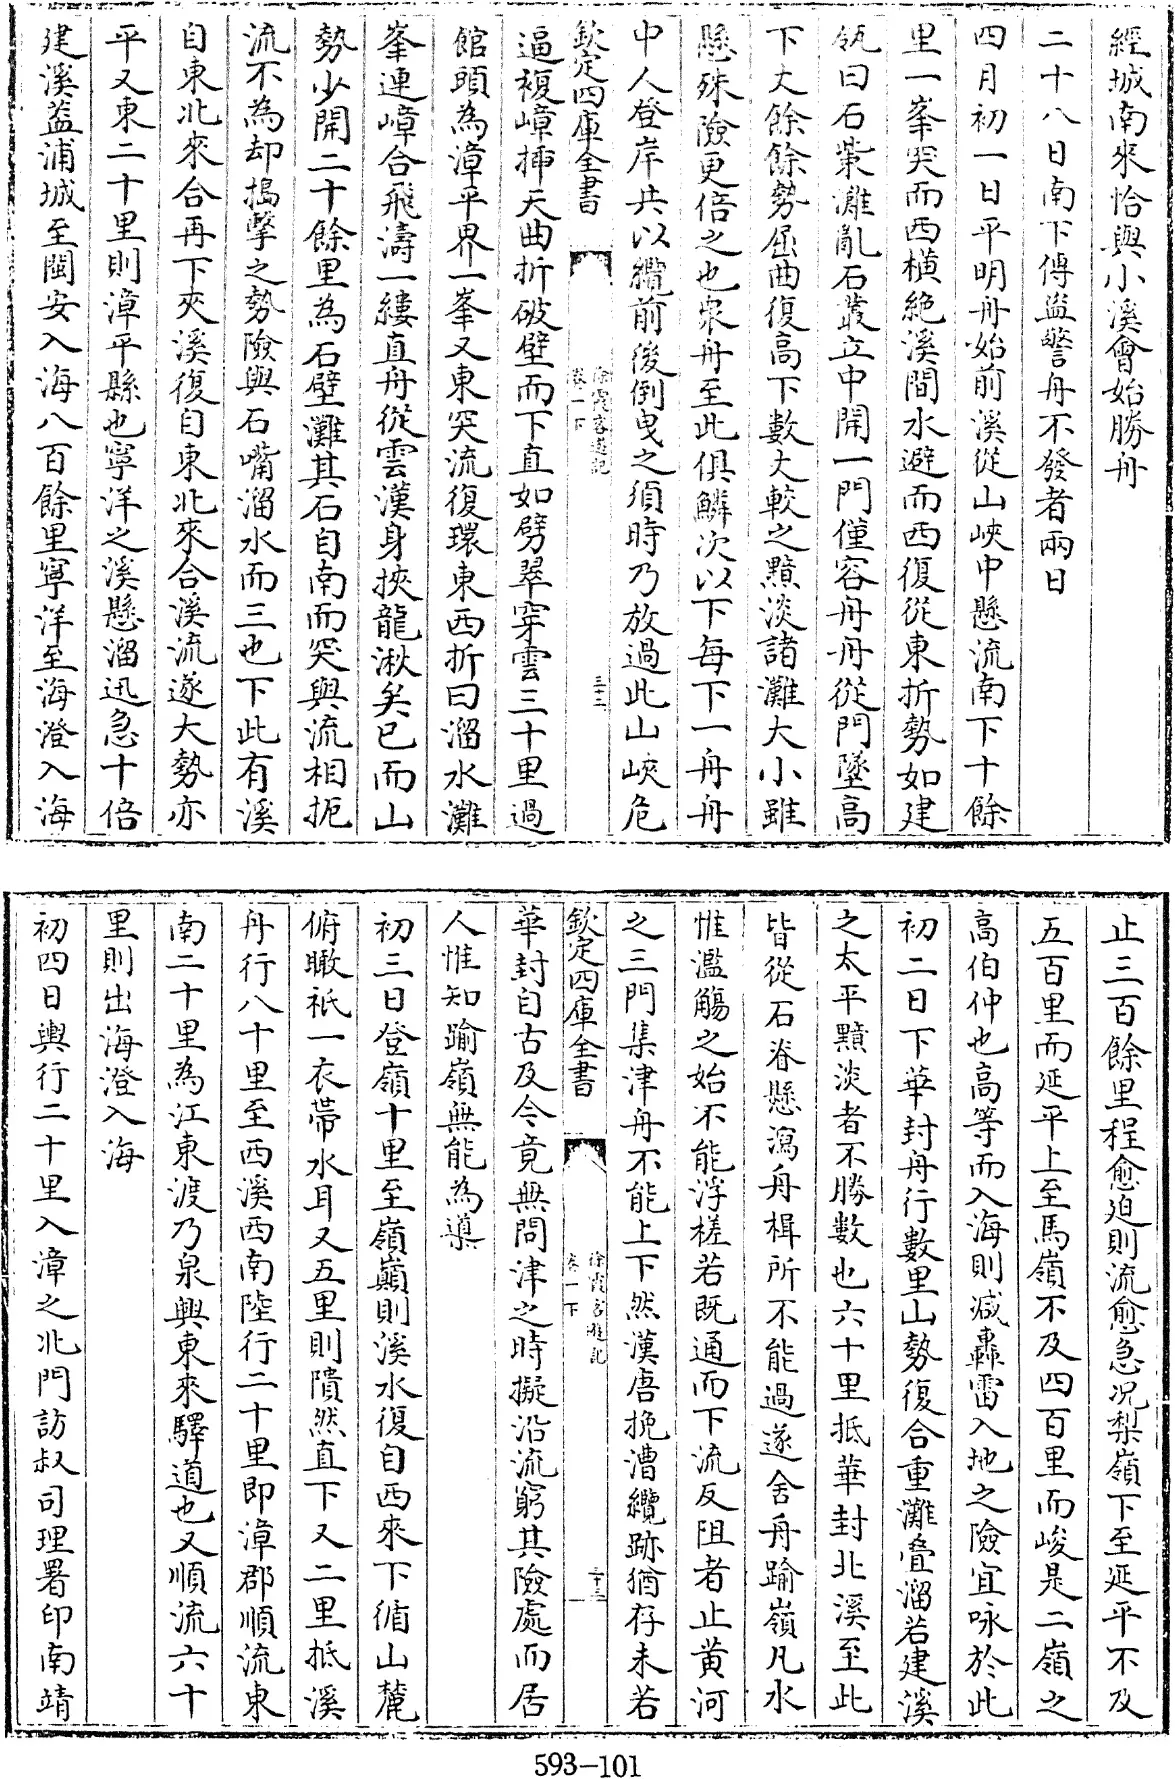 經城南來恰與小溪會始勝舟
二十八日南下傳盜警舟不發者兩日
四月初一日平明舟始前溪從山峽中懸流南下十餘
里一峯突而西橫絶溪間水避而西復從東折勢如建
瓴曰石紫灘亂石叢立中開一門僅容舟舟從門墜高
下丈餘餘勢屈曲復高下數丈較之黯淡諸灘大小雖
懸殊險更倍之也衆舟至此俱鱗次以下每下一舟舟
中人登岸共以纜前後倒曳之須時乃放過此山峽危
欽定四庫全書
徐霞客遊記
卷一下
三十二
逼複嶂挿天曲折破壁而下直如劈翠穿雲三十里過
館頭為漳平界一峯又東突流復環東西折曰溜水灘
峯連嶂合飛濤一縷直舟從雲漢身挾龍湫矣已而山
勢少開二十餘里為石壁灘其石自南而突與流相扼
流不為却搗擊之勢險與石嘴溜水而三也下此有溪
自東北來合再下夾溪復自東北來合溪流遂大勢亦
平又東二十里則漳平縣也寧洋之溪懸溜迅急十倍
建溪葢浦城至閩安入海八百餘里寧洋至海澄入海
止三百餘里程愈迫則流愈急况梨嶺下至延平不及
五百里而延平上至馬嶺不及四百里而峻是二嶺之
高伯仲也高等而入海則减轟雷入地之險宜咏於此
初二日下華封舟行數里山勢復合重灘疊溜若建溪
之太平黯淡者不勝數也六十里抵華封北溪至此
皆從石脊懸瀉舟楫所不能過遂舍舟踰嶺凡水
惟濫觴之始不能浮槎若既通而下流反阻者止黄河
之三門集津舟不能上下然漢唐挽漕纜跡猶存未若
欽定四庫全書
徐霞客遊記
卷一下
三十三
華封自古及今竟無問津之時擬沿流窮其險處而居
人惟知踰嶺無能為導
初三日登嶺十里至嶺巔則溪水復自西來下循山麓
俯瞰祇一衣帶水耳又五里則隤然直下又二里抵溪
舟行八十里至西溪西南陸行二十里即漳郡順流東
南二十里為江東渡乃泉興東來驛道也又順流六十
里則出海澄入海
初四日輿行二十里入漳之北門訪叔司理署印南靖
593-101